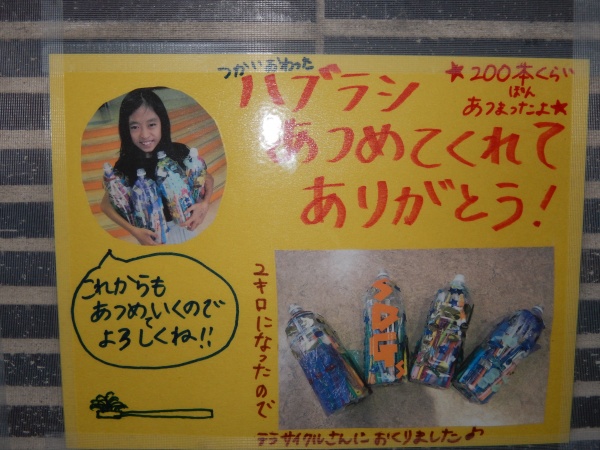 つかいおわった
ハブラシ
あつめてくれて
ありがとう!
★200本くらい
ぽん
あつまったよ★
これからも
あつめていくので
よろしくね!!
2キロになったので
テラサイクルさんにおくりました♪